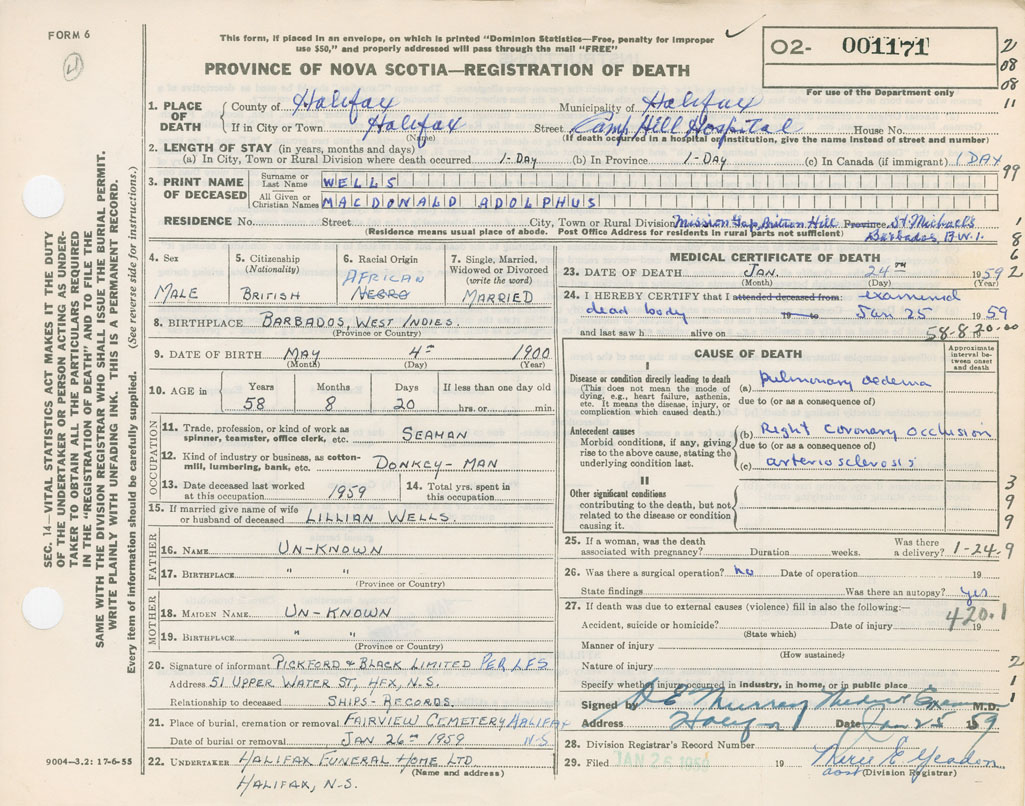 FORM 6
4
This form, if placed in an envelope, on which is printed "Dominion Statistics—Free, penalty for improper
use $50," and properly addressed will pass through the mail "FREE"
PROVINCE OF NOVA SCOTIA—REGISTRATION OF DEATH
O2- 001171
For use of the Department only
2
08
08
11
99
1
8
6
2
3
9
9
9
2
1
1
1
SEC. 14—VITAL STATISTICS ACT MAKES IT THE DUTY
OF THE UNDERTAKER OR PERSON ACTING AS UNDER-
TAKER TO OBTAIN ALL THE PARTICULARS REQUIRED
IN THE "REGISTRATION OF DEATH" AND TO FILE THE
SAME WITH THE DIVISION REGISTRAR WHO SHALL ISSUE THE BURIAL PERMIT.
WRITE PLAINLY WITH UNFADING INK. THIS IS A PERMANENT RECORD.
Every item of information should be carefully supplied. (See reverse side for instructions.)
1. PLACE OF DEATH
County of Halifax Municipality of Halifax
If in City or Town Halifax Street Camp Hill Hospital House No.
(Name) (If death occurred in a hospital or institution, give the name instead of street and number)
2. LENGTH OF STAY (in years, months and days)
(a) In City, Town or Rural Division where death occurred 1-Day (b) In Province 1-Day (c) In Canada (if immigrant) 1 DAY
3. PRINT NAME OF DECEASED
Surname or Last Name WELLS
All Given or Christian Names MACDONALD ADOLPHUS
RESIDENCE No. Street City, Town or Rural Division Mission Gap, Britton Hill Province St. Michaels
(Residence means usual place of abode. Post Office Address for residents in rural parts not sufficient) Barbados, B.W.I.
4. Sex MALE
5. Citizenship (Nationality) BRITISH
6. Racial Origin AFRICAN NEGRO
7. Single, Married, Widowed or Divorced (write the word) MARRIED
8. BIRTHPLACE BARBADOS, WEST INDIES.
(Province or Country)
9. DATE OF BIRTH MAY 4th 1900
(Month) (Day) (Year)
10. AGE in Years 58 Months 8 Days 20 If less than one day old hrs. or min.
OCCUPATION
11. Trade, profession, or kind of work as spinner, teamster, office clerk, etc. SEAMAN
12. Kind of industry or business, as cotton-mill, lumbering, bank, etc. DONKEY-MAN
13. Date deceased last worked at this occupation 1959
14. Total yrs. spent in this occupation
15. If married give name of wife or husband of deceased LILLIAN WELLS.
FATHER
16. NAME UN-KNOWN
17. BIRTHPLACE " "
(Province or Country)
MOTHER
18. MAIDEN NAME UN-KNOWN
19. BIRTHPLACE " "
(Province or Country)
20. Signature of informant PICKFORD & BLACK LIMITED PER LFS
Address 51 UPPER WATER ST, HFX, N.S.
Relationship to deceased SHIPS-RECORDS.
21. Place of burial, cremation or removal FAIRVIEW CEMETERY HALIFAX
Date of burial or removal JAN 26th 1959 N-S
22. UNDERTAKER HALIFAX FUNERAL HOME LTD.
(Name and address)
HALIFAX, N.S.
9004—3.2: 17-6-55
MEDICAL CERTIFICATE OF DEATH
23. DATE OF DEATH JAN. 24TH 1959
(Month) (Day) (Year)
24. I HEREBY CERTIFY that I attended deceased from: examined
dead body 19 to Jan 25 1959
and last saw h alive on 58-8-20-00 19
CAUSE OF DEATH
Approximate interval between onset and death
I
Disease or condition directly leading to death (a) pulmonary oedema
(This does not mean the mode of dying, e.g., heart failure, asthenia, etc. It means the disease, injury, or complication which caused death.)
due to (or as a consequence of)
Antecedent causes (b) Right Coronary Occlusion
Morbid conditions, if any, giving rise to the above cause, stating the underlying condition last.
due to (or as a consequence of)
(c) arteriosclerosis
II
Other significant conditions
contributing to the death, but not related to the disease or condition causing it.
25. If a woman, was the death associated with pregnancy? Duration weeks. Was there a delivery? 1-24-9
26. Was there a surgical operation? no Date of operation 19
State findings Was there an autopsy? yes
27. If death was due to external causes (violence) fill in also the following:— 420.1
Accident, suicide or homicide? Date of injury 19
(State which)
Manner of injury
(How sustained)
Nature of injury
Specify whether injury occurred in industry, in home, or in public place
Signed by D E Murray Medical Exam M.D.
Address Halifax Date Jan 25 1959
28. Division Registrar's Record Number
29. Filed JAN 26 1959 19
(Division Registrar)